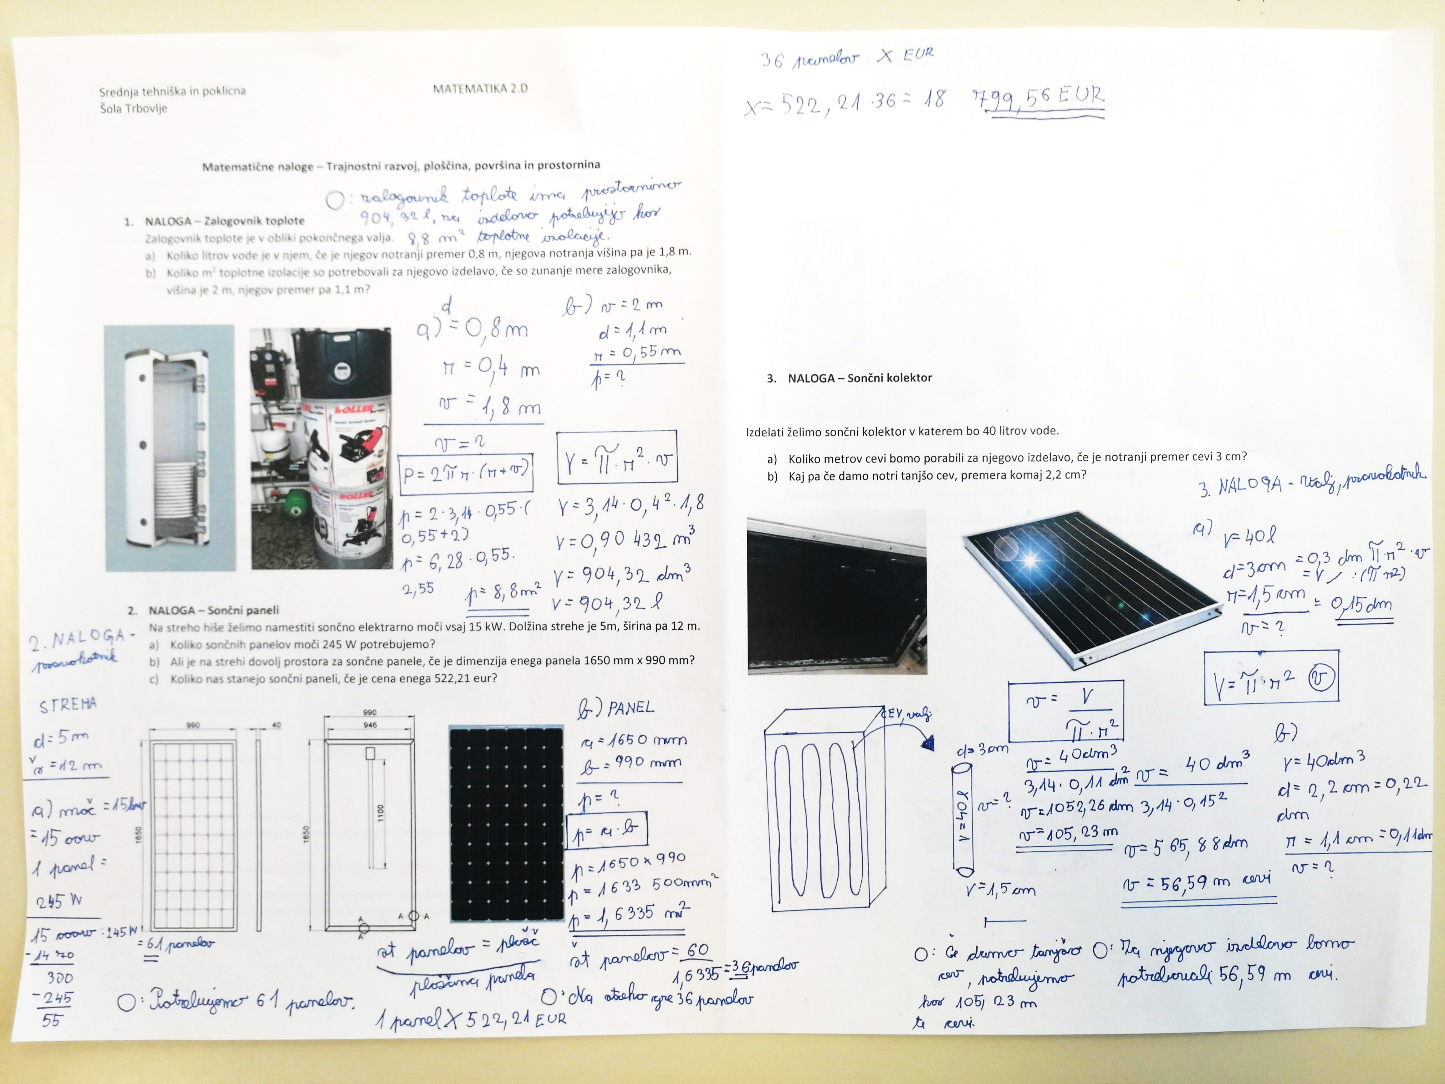 Srednja tehniška in poklicna
Šola Trbovlje
MATEMATIKA 2.D
Matematične naloge – Trajnostni razvoj, ploščina, površina in prostornina
O: zalogovnik toplote ima prostornino
904,32 l, na izdelavo potrebujejo kar
8,8 m² toplotne izolacije.
1. NALOGA – Zalogovnik toplote
Zalogovnik toplote je v obliki pokončnega valja.
a) Koliko litrov vode je v njem, če je njegov notranji premer 0,8 m, njegova notranja višina pa je 1,8 m.
b) Koliko m² toplotne izolacije so potrebovali za njegovo izdelavo, če so zunanje mere zalogovnika,
višina je 2 m, njegov premer pa 1,1 m?
d
a) = 0,8 m
r = 0,4 m
v = 1,8 m
v = ?
P = 2πr · (r + v)
p = 2 · 3,14 · 0,55 · (
0,55 + 2)
p = 6,28 · 0,55 ·
2,55
p = 8,8 m²
b) v = 2 m
d = 1,1 m
r = 0,55 m
p = ?
V = π · r² · v
V = 3,14 · 0,4² · 1,8
V = 0,90 432 m³
V = 904,32 dm³
V = 904,32 l
ROLLER
ROLLER
2. NALOGA – Sončni paneli
Na streho hiše želimo namestiti sončno elektrarno moči vsaj 15 kW. Dolžina strehe je 5m, širina pa 12 m.
a) Koliko sončnih panelov moči 245 W potrebujemo?
b) Ali je na strehi dovolj prostora za sončne panele, če je dimenzija enega panela 1650 mm x 990 mm?
c) Koliko nas stanejo sončni paneli, če je cena enega 522,21 eur?
2. NALOGA -
pravokotnik
STREHA
d = 5 m
š = 12 m
a) moč = 15 kW
= 15 000W
1 panel =
245 W
15 000W : 245 W
= 61 panelov
- 14 70
300
- 245
55
O: Potrebujemo 61 panelov.
990
40
1650
990
946
1650
1100
A
A
A
b) PANEL
a = 1650 mm
b = 990 mm
p = ?
p = a · b
p = 1650 × 990
p = 1633 500mm²
p = 1,6335 m²
št panelov = plošč
ploščina panela
št panelov = 60
1,6335 = 36 panelov
O: Na streho gre 36 panelov
1 panel X 522,21 EUR
36 panelov X EUR
X = 522,21 · 36 = 18 799,56 EUR
3. NALOGA – Sončni kolektor
Izdelati želimo sončni kolektor v katerem bo 40 litrov vode.
a) Koliko metrov cevi bomo porabili za njegovo izdelavo, če je notranji premer cevi 3 cm?
b) Kaj pa če damo notri tanjšo cev, premera komaj 2,2 cm?
3. NALOGA - valj, pravokotnik
a) V = 40 l
d = 3 cm = 0,3 dm π · r² · v
= V / : (π r²)
r = 1,5 cm = 0,15 dm
v = ?
V = π · r² v
v = V
π · r²
CEV, valj
d = 3 cm
v = ?
V = 40 l
r = 1,5 cm
v = 40 dm³
3,14 · 0,11 dm²
v = 1052,26 dm
v = 105,23 m
v = 40 dm³
3,14 · 0,15²
v = 565,88 dm
v = 56,59 m cevi
b)
V = 40dm³
d = 2,2 cm = 0,22
dm
r = 1,1 cm = 0,11dm
v = ?
O: Če damo tanjšo
cev, potrebujemo
kar 105,23 m
te cevi.
O: Za njegovo izdelavo bomo
potrebovali 56,59 m cevi.